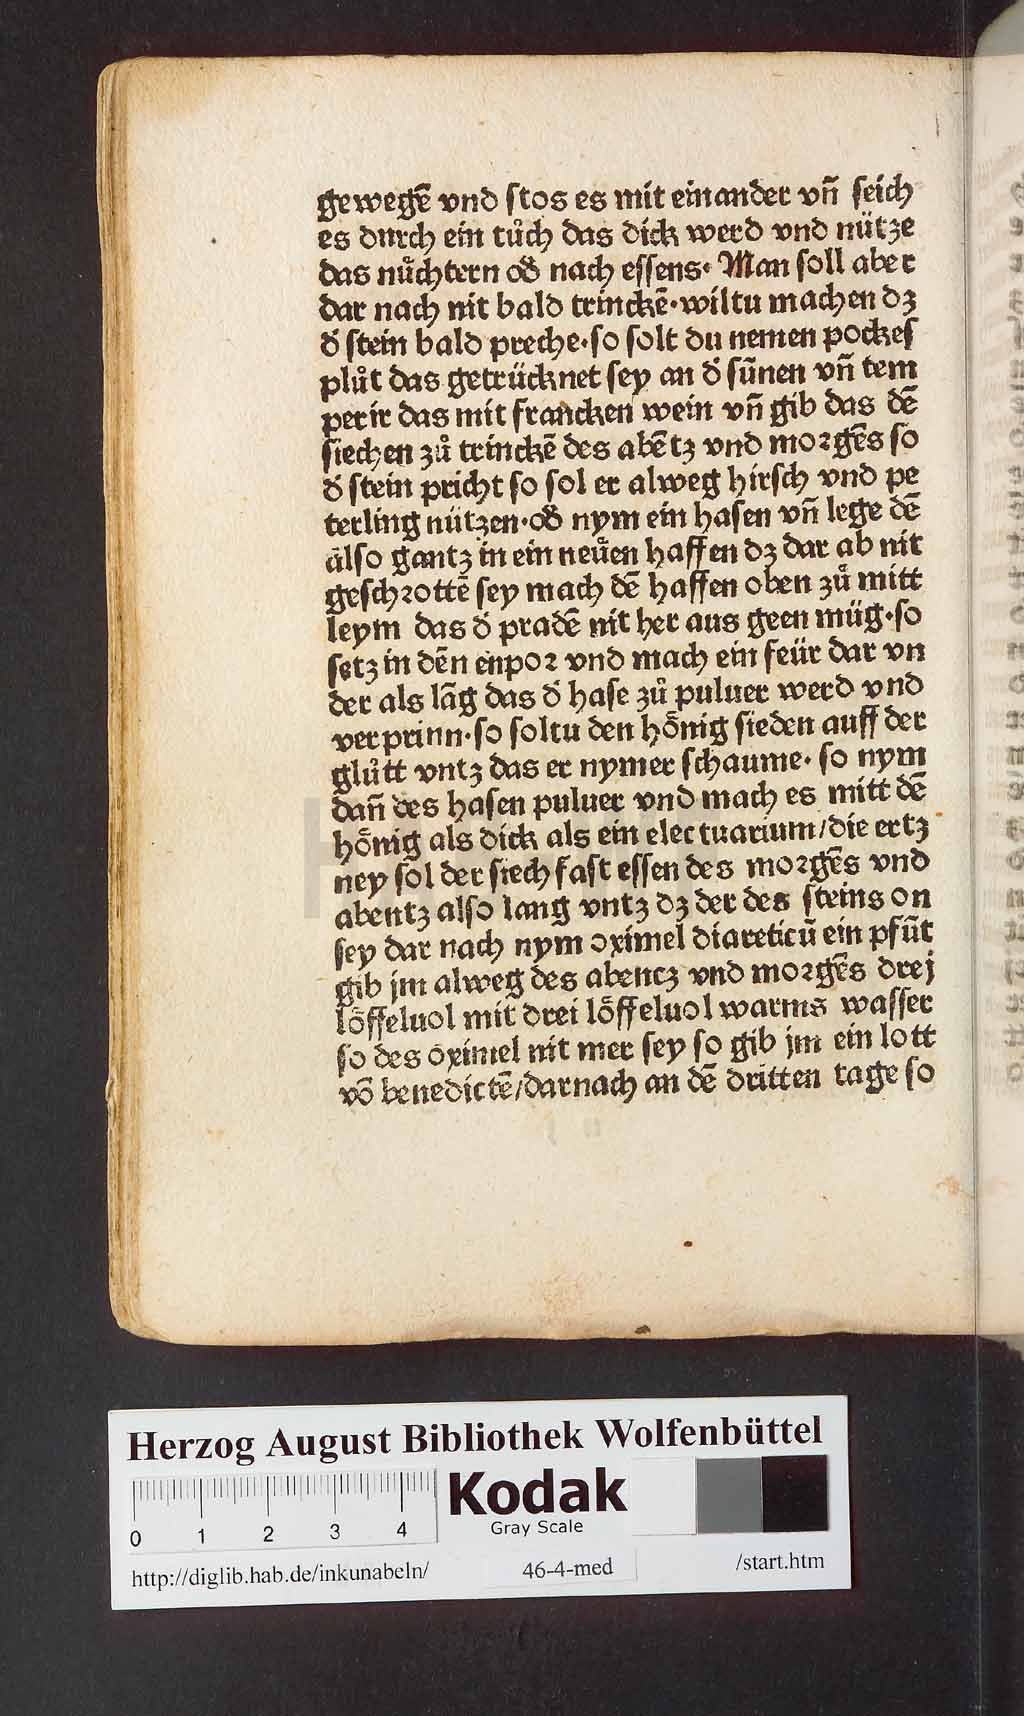 gewegē vnd ſtos es mit einander vn̄ ſeich
es durch ein tůch das dick werd vnd nütze
das nůchtern od̕ nach eſſens· Man ſoll aber
dar nach nit bald trinckē·wiltu machen dʒ
d̕ ſtein bald preche·ſo ſolt du nemen pockeſ
plůt das getrücknet ſey an d̕ ſūnen vn̄ tem
perir das mit francken wein vn̄ gib das dē
ſiechen zů trinckē des abētz vnd morgēs ſo
d̕ ſtein pricht ſo ſol er alweg hirſch vnd pe
terling nützen·od̕ nym ein haſen vn̄ lege dē
alſo gantz in ein neüen haffen dʒ dar ab nit
geſchrottē ſey mach dē haffen oben zů mitt
leym das d̕ pradē nit her aus geen müg·ſo
ſetz in dēn enpor vnd mach ein feür dar vn
der als lāg das d̕ haſe zů puluer werd vnd
verprinn·ſo ſoltu den hönig ſieden auff der
glůtt vntz das er nymer ſchaume· ſo nym
dan̄ des haſen puluer vnd mach es mitt dē
hönig als dick als ein electuarium/die ertz
ney ſol der ſiech faſt eſſen des morgēs vnd
abentz alſo lang vntz dʒ der des ſteins on
ſey dar nach nym oximel diareticū ein pfūt
gib jm alweg des abencz vnd morgēs drej
löffeluol mit drei löffeluol warms waſſer
ſo des oximel nit mer ſey ſo gib jm ein lott
vō benedictē/darnach an dē dritten tage ſo
Herzog August Bibliothek Wolfenbüttel
0 1 2 3 4
Kodak
Gray Scale
http://diglib.hab.de/inkunabeln/ 46-4-med /start.htm